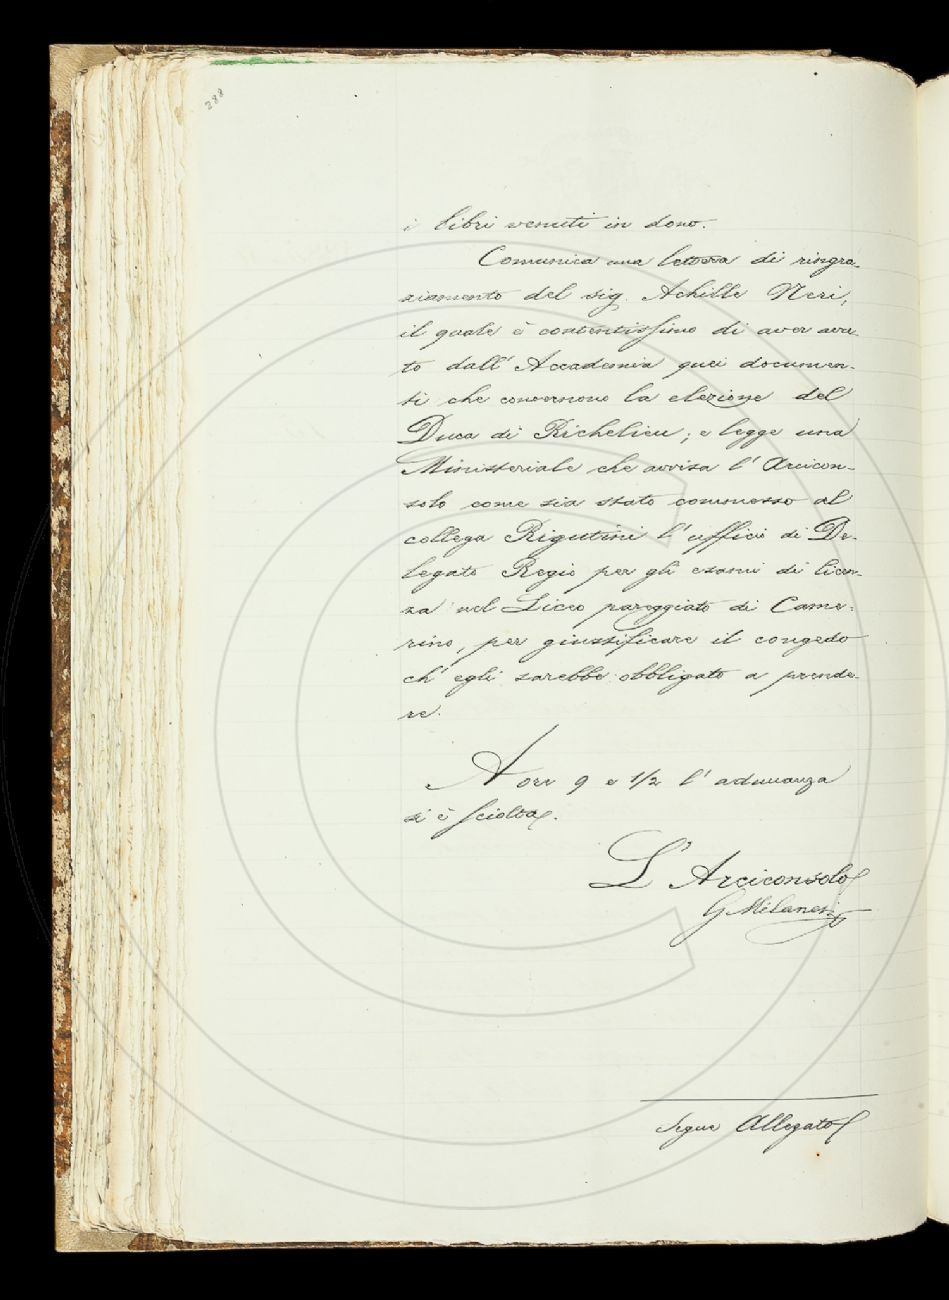 288
i libri venuti in dono.
Comunica una lettera di ringra-
ziamento del sig. Achille Neri,
il quale è contentissimo di aver avu-
to dall' Accademia quei documen-
ti che concernono la elezione del
Duca di Richelieu; e legge una
Ministeriale che avvisa l' Arcicon-
solo come sia stato commesso al
collega Rigutini l' ufficio di De-
legato Regio per gli esami di licen-
za nel Liceo pareggiato di Came-
rino, per giustificare il congedo
ch' egli sarebbe obbligato a prende-
re.
A ore 9 e 1/2 l' adunanza
si è sciolta.
L' Arciconsolo
G. Milanesi
Segue Allegato